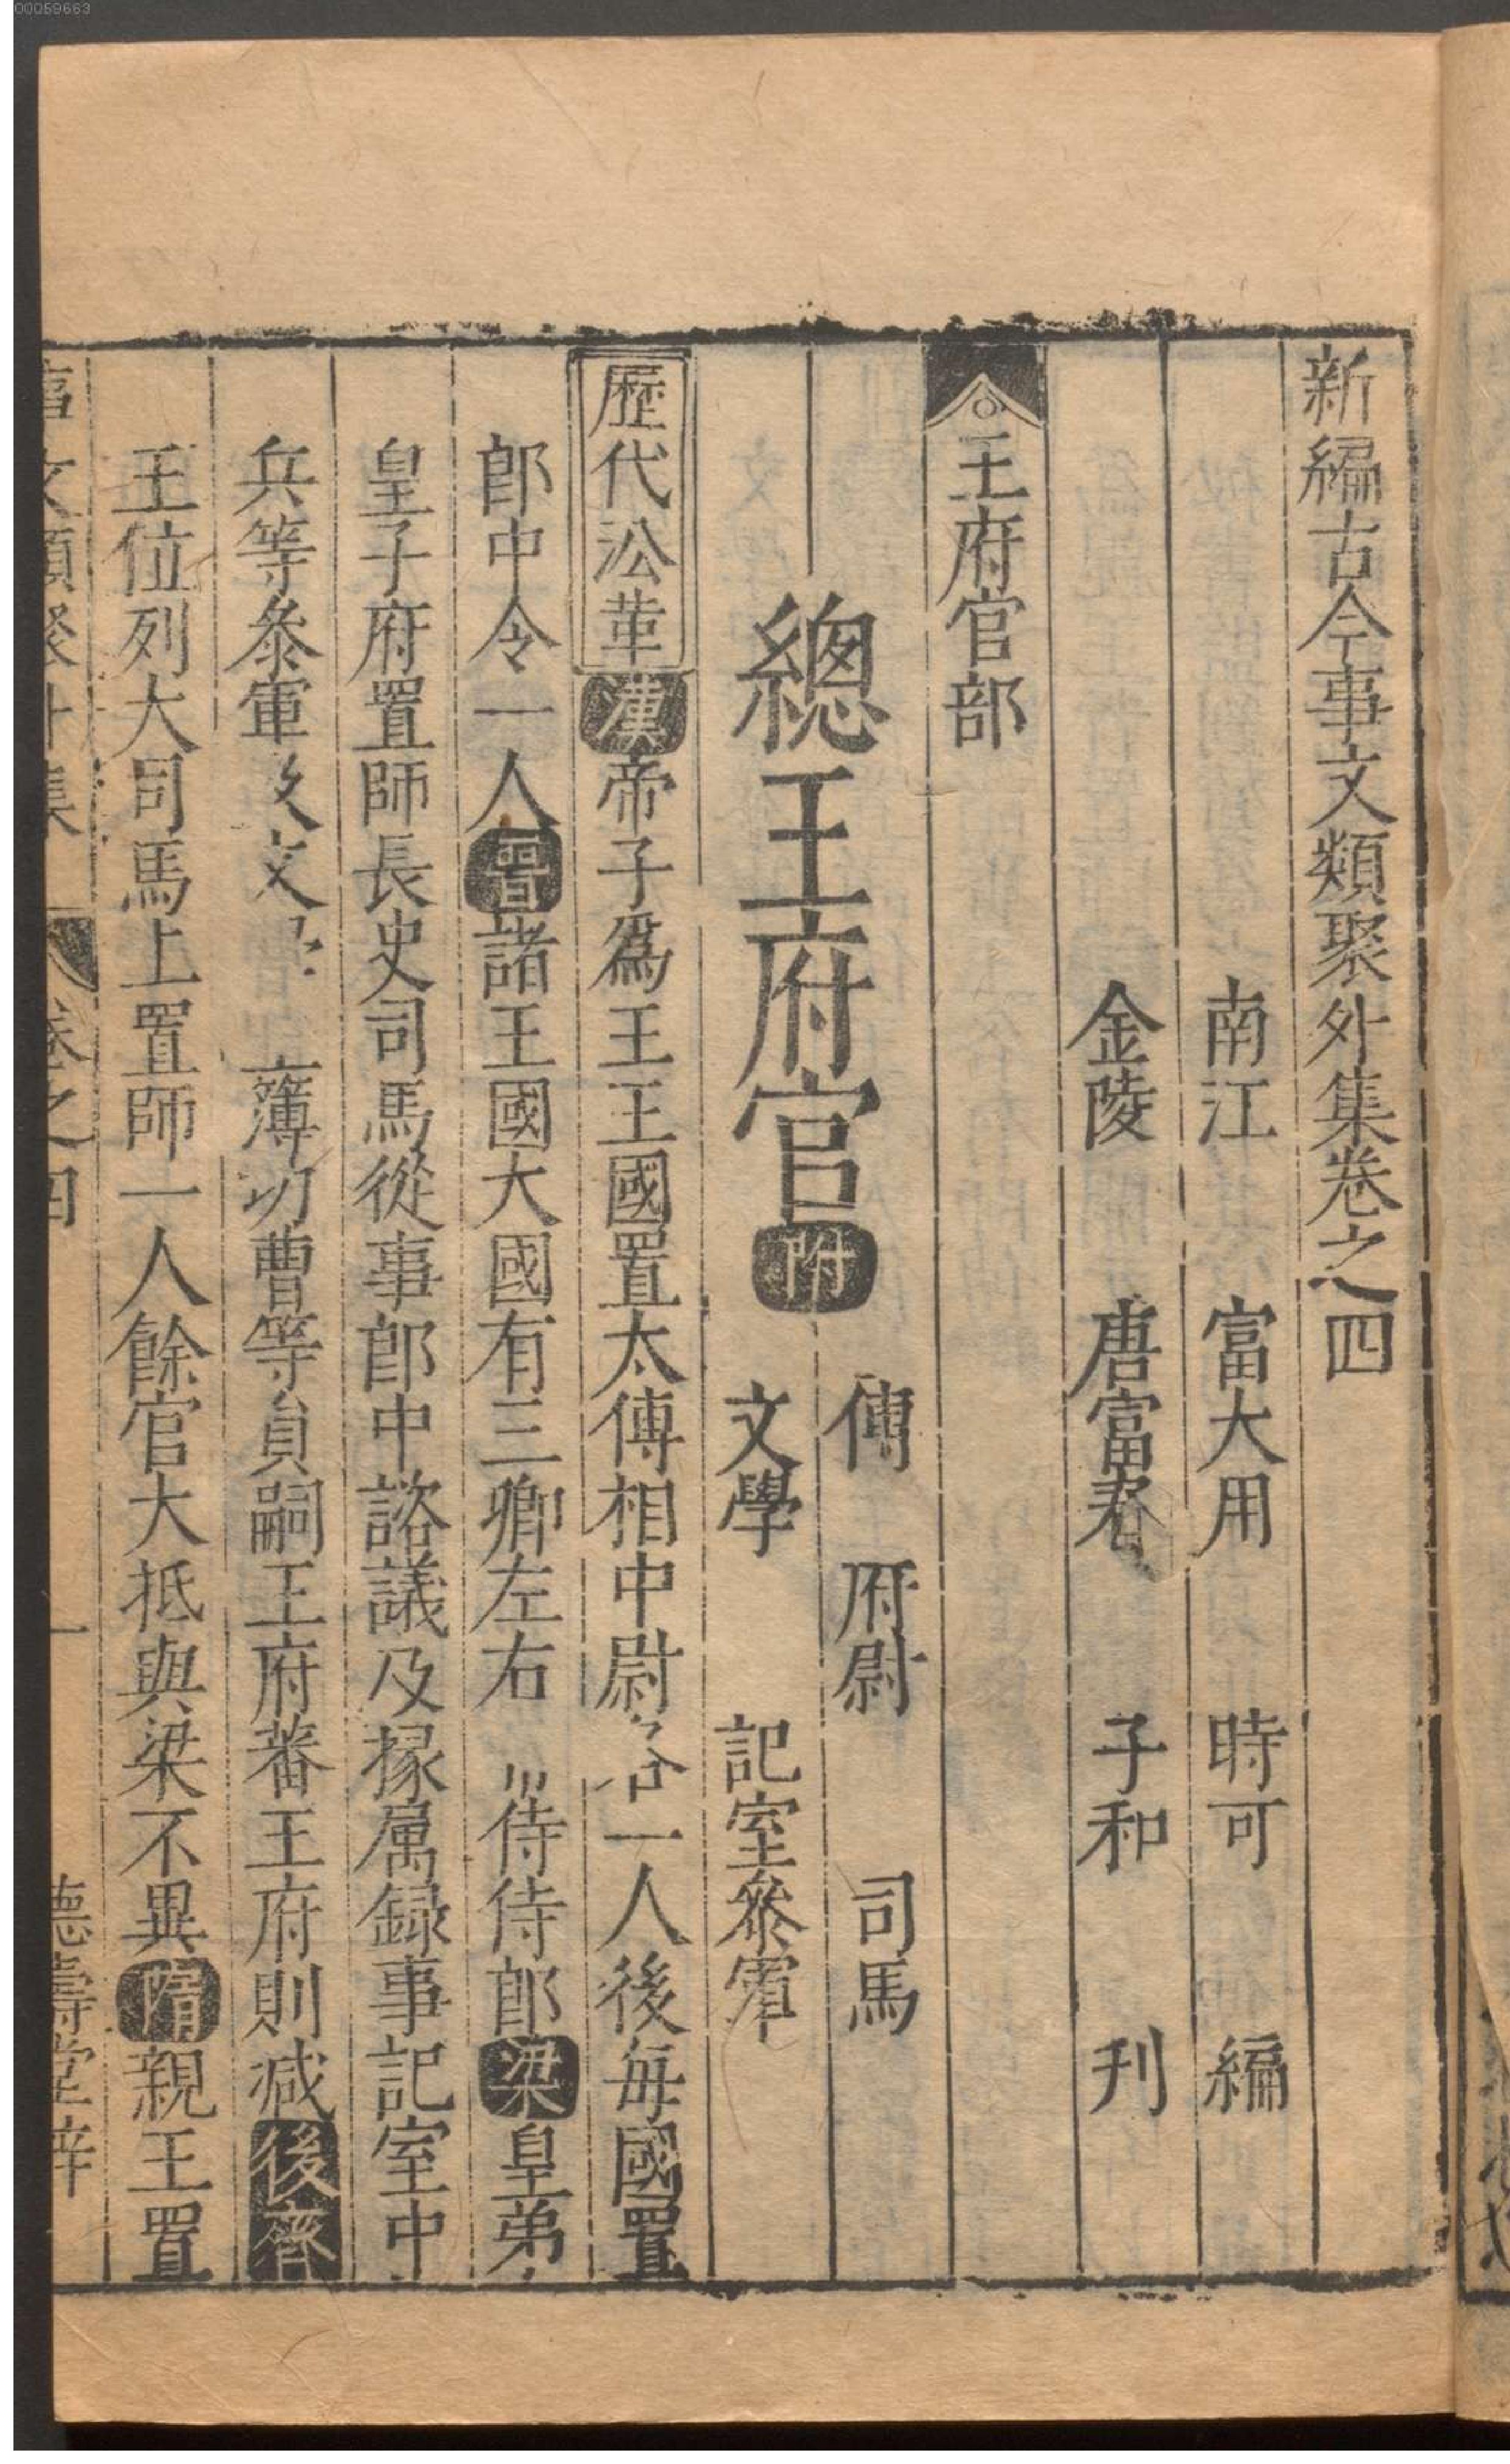 00059663
新編古今事文類聚外集卷之四
南江 富大用 時可 編
金陵 唐富春 子和 刋
王府官部
總王府官 附 傅 府尉 司馬
文學 記室叅軍
歷代㳂革 漢帝子爲王王國置太傅相中尉各一人後每國置
郎中令一人晉諸王國大國有三卿左右 侍侍郎梁皇弟
皇子府置師長史司馬從事郎中諮議及掾属録事記室中
兵等叅軍 文 簿功曹等員嗣王府蕃王府則減後齊
王位列大司馬上置師一人餘官大抵與梁不異隋親王置
事文類聚外集 卷之四 一 德壽堂梓